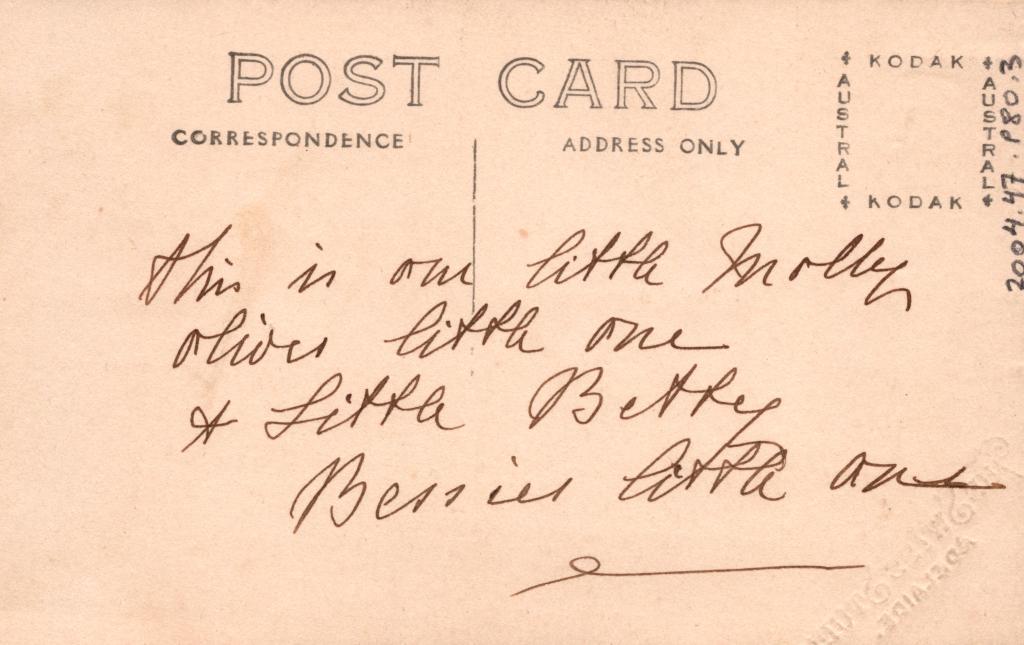 POST CARD
CORRESPONDENCE
ADDRESS ONLY
KODAK
AUSTRAL
AUSTRAL
KODAK
2004.47.P80.3
this is our little Molly
olives little one
& Little Betty
Bessies little one